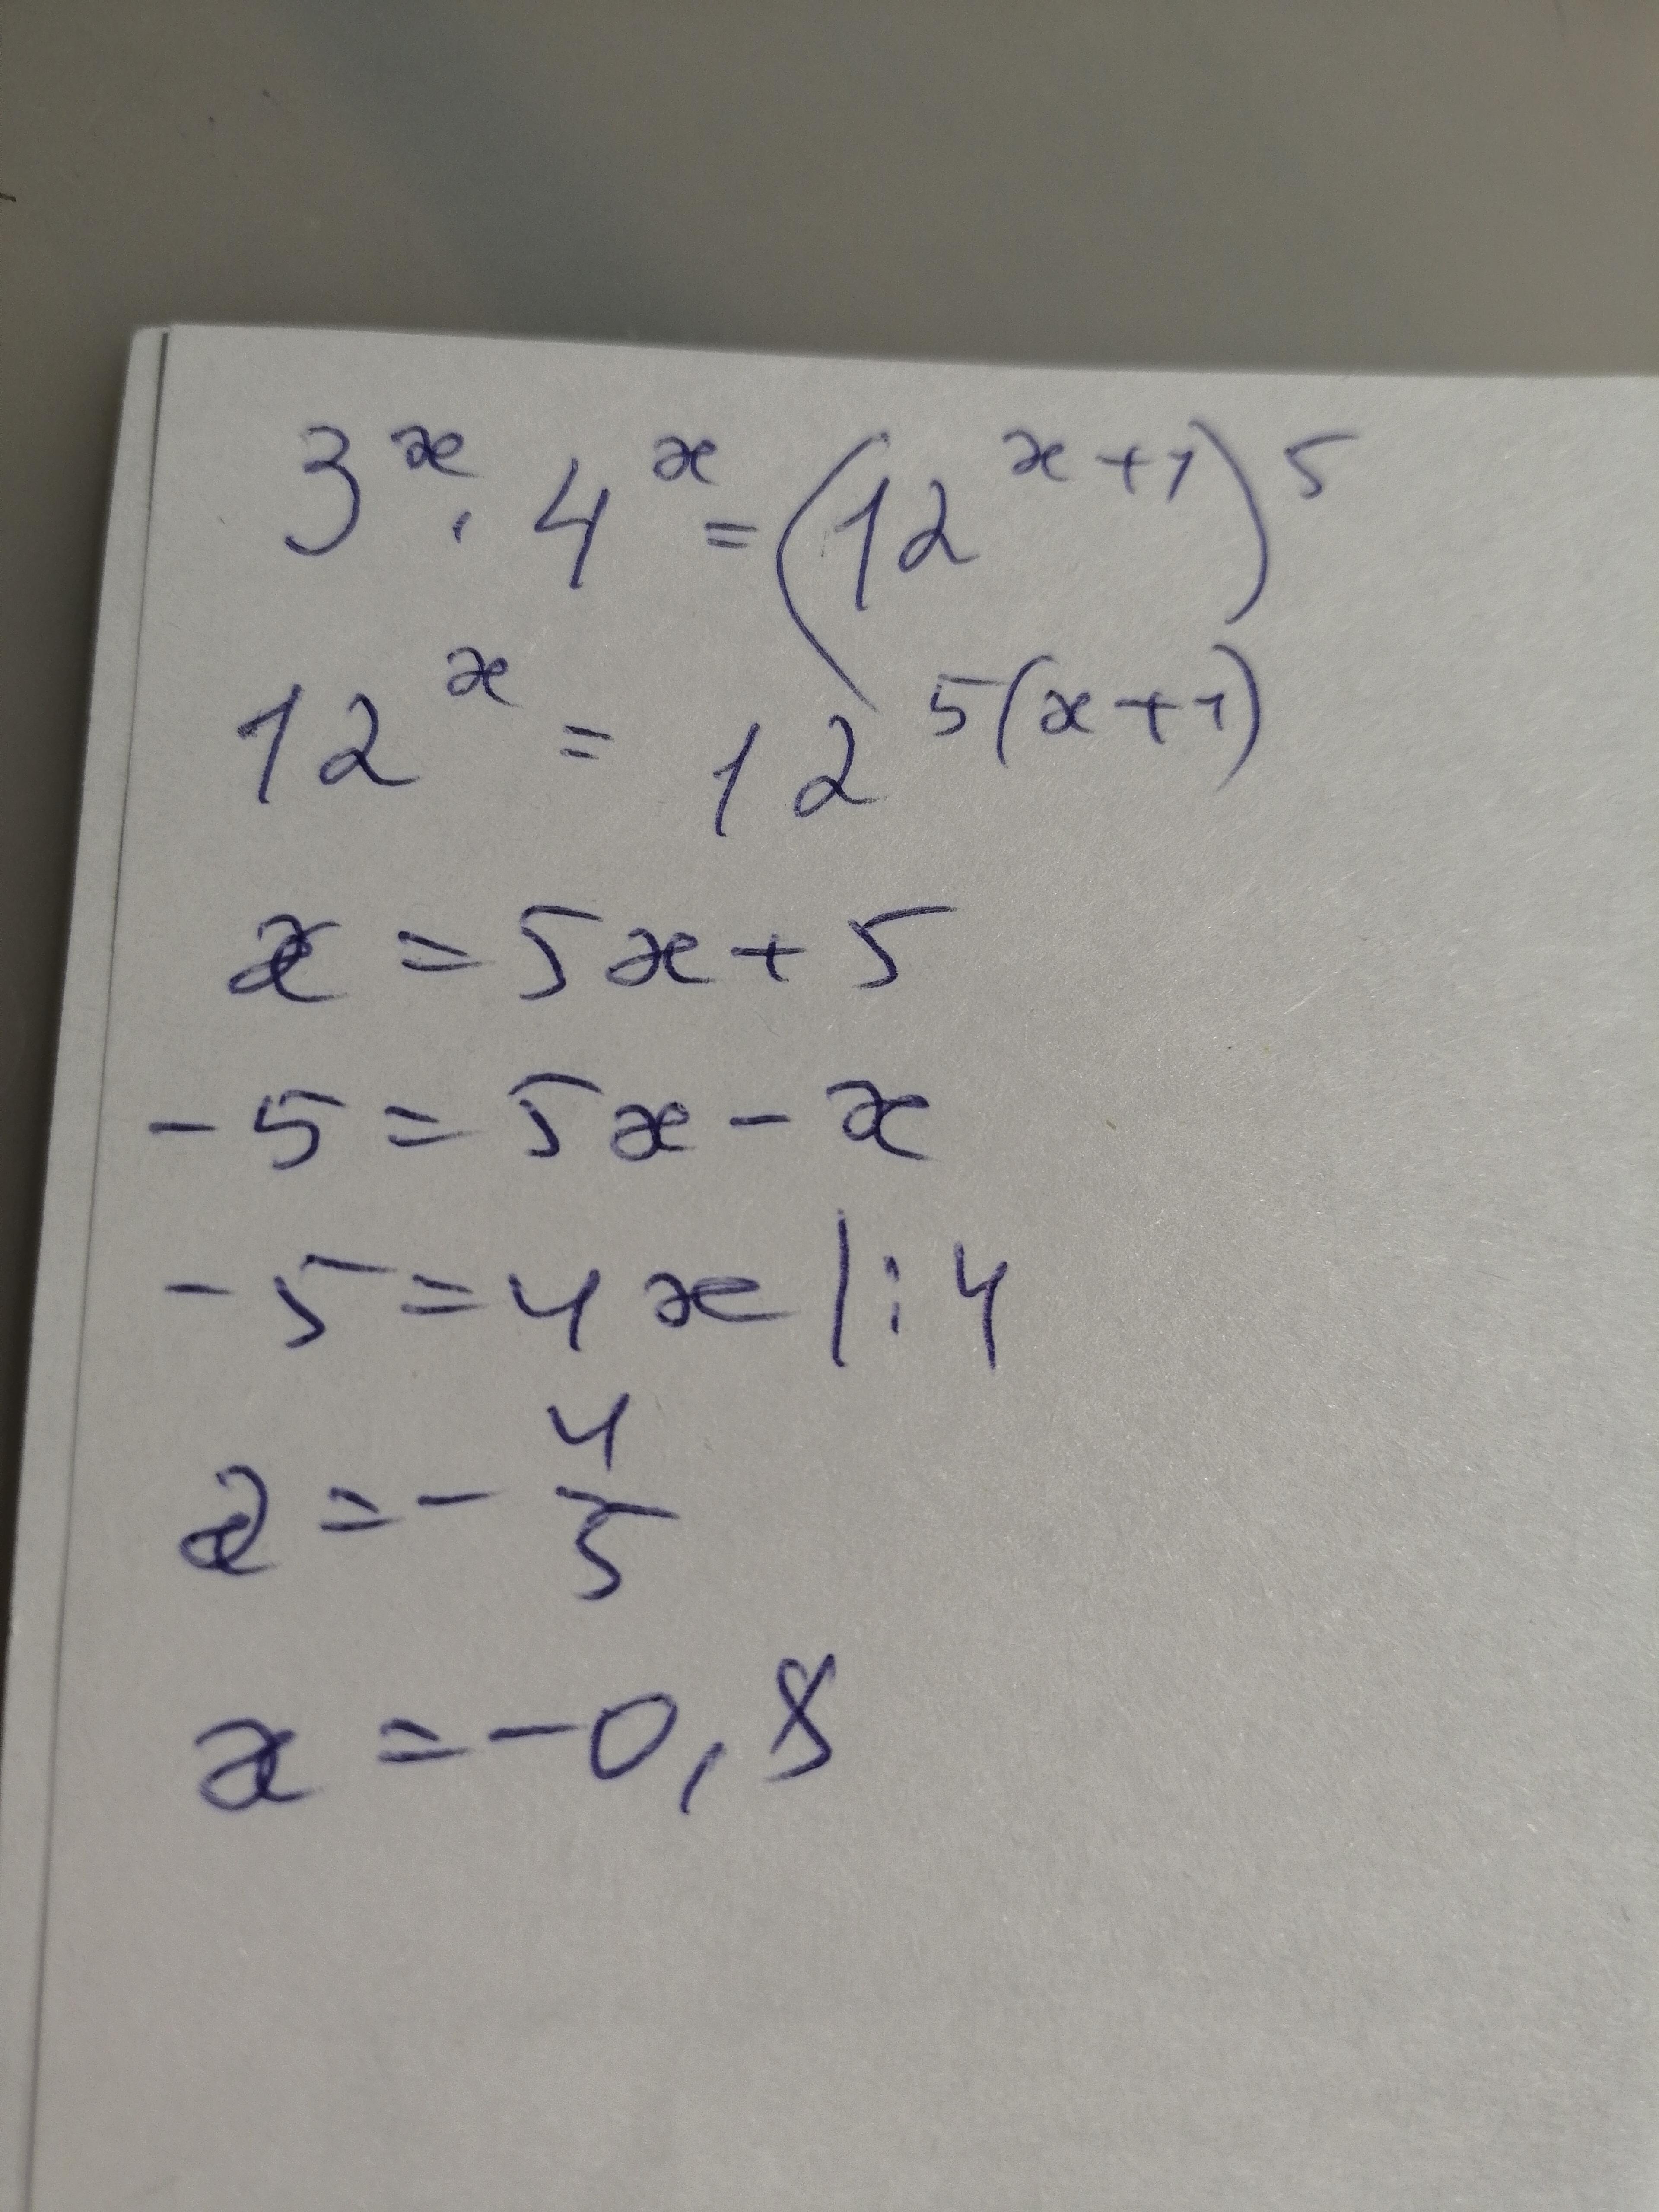 3^x · 4^x = (12^(x+1))^5
12^x = 12^(5(x+1))
x = 5x + 5
-5 = 5x - x
-5 = 4x |:4
x = - 4/5
x = -0,8